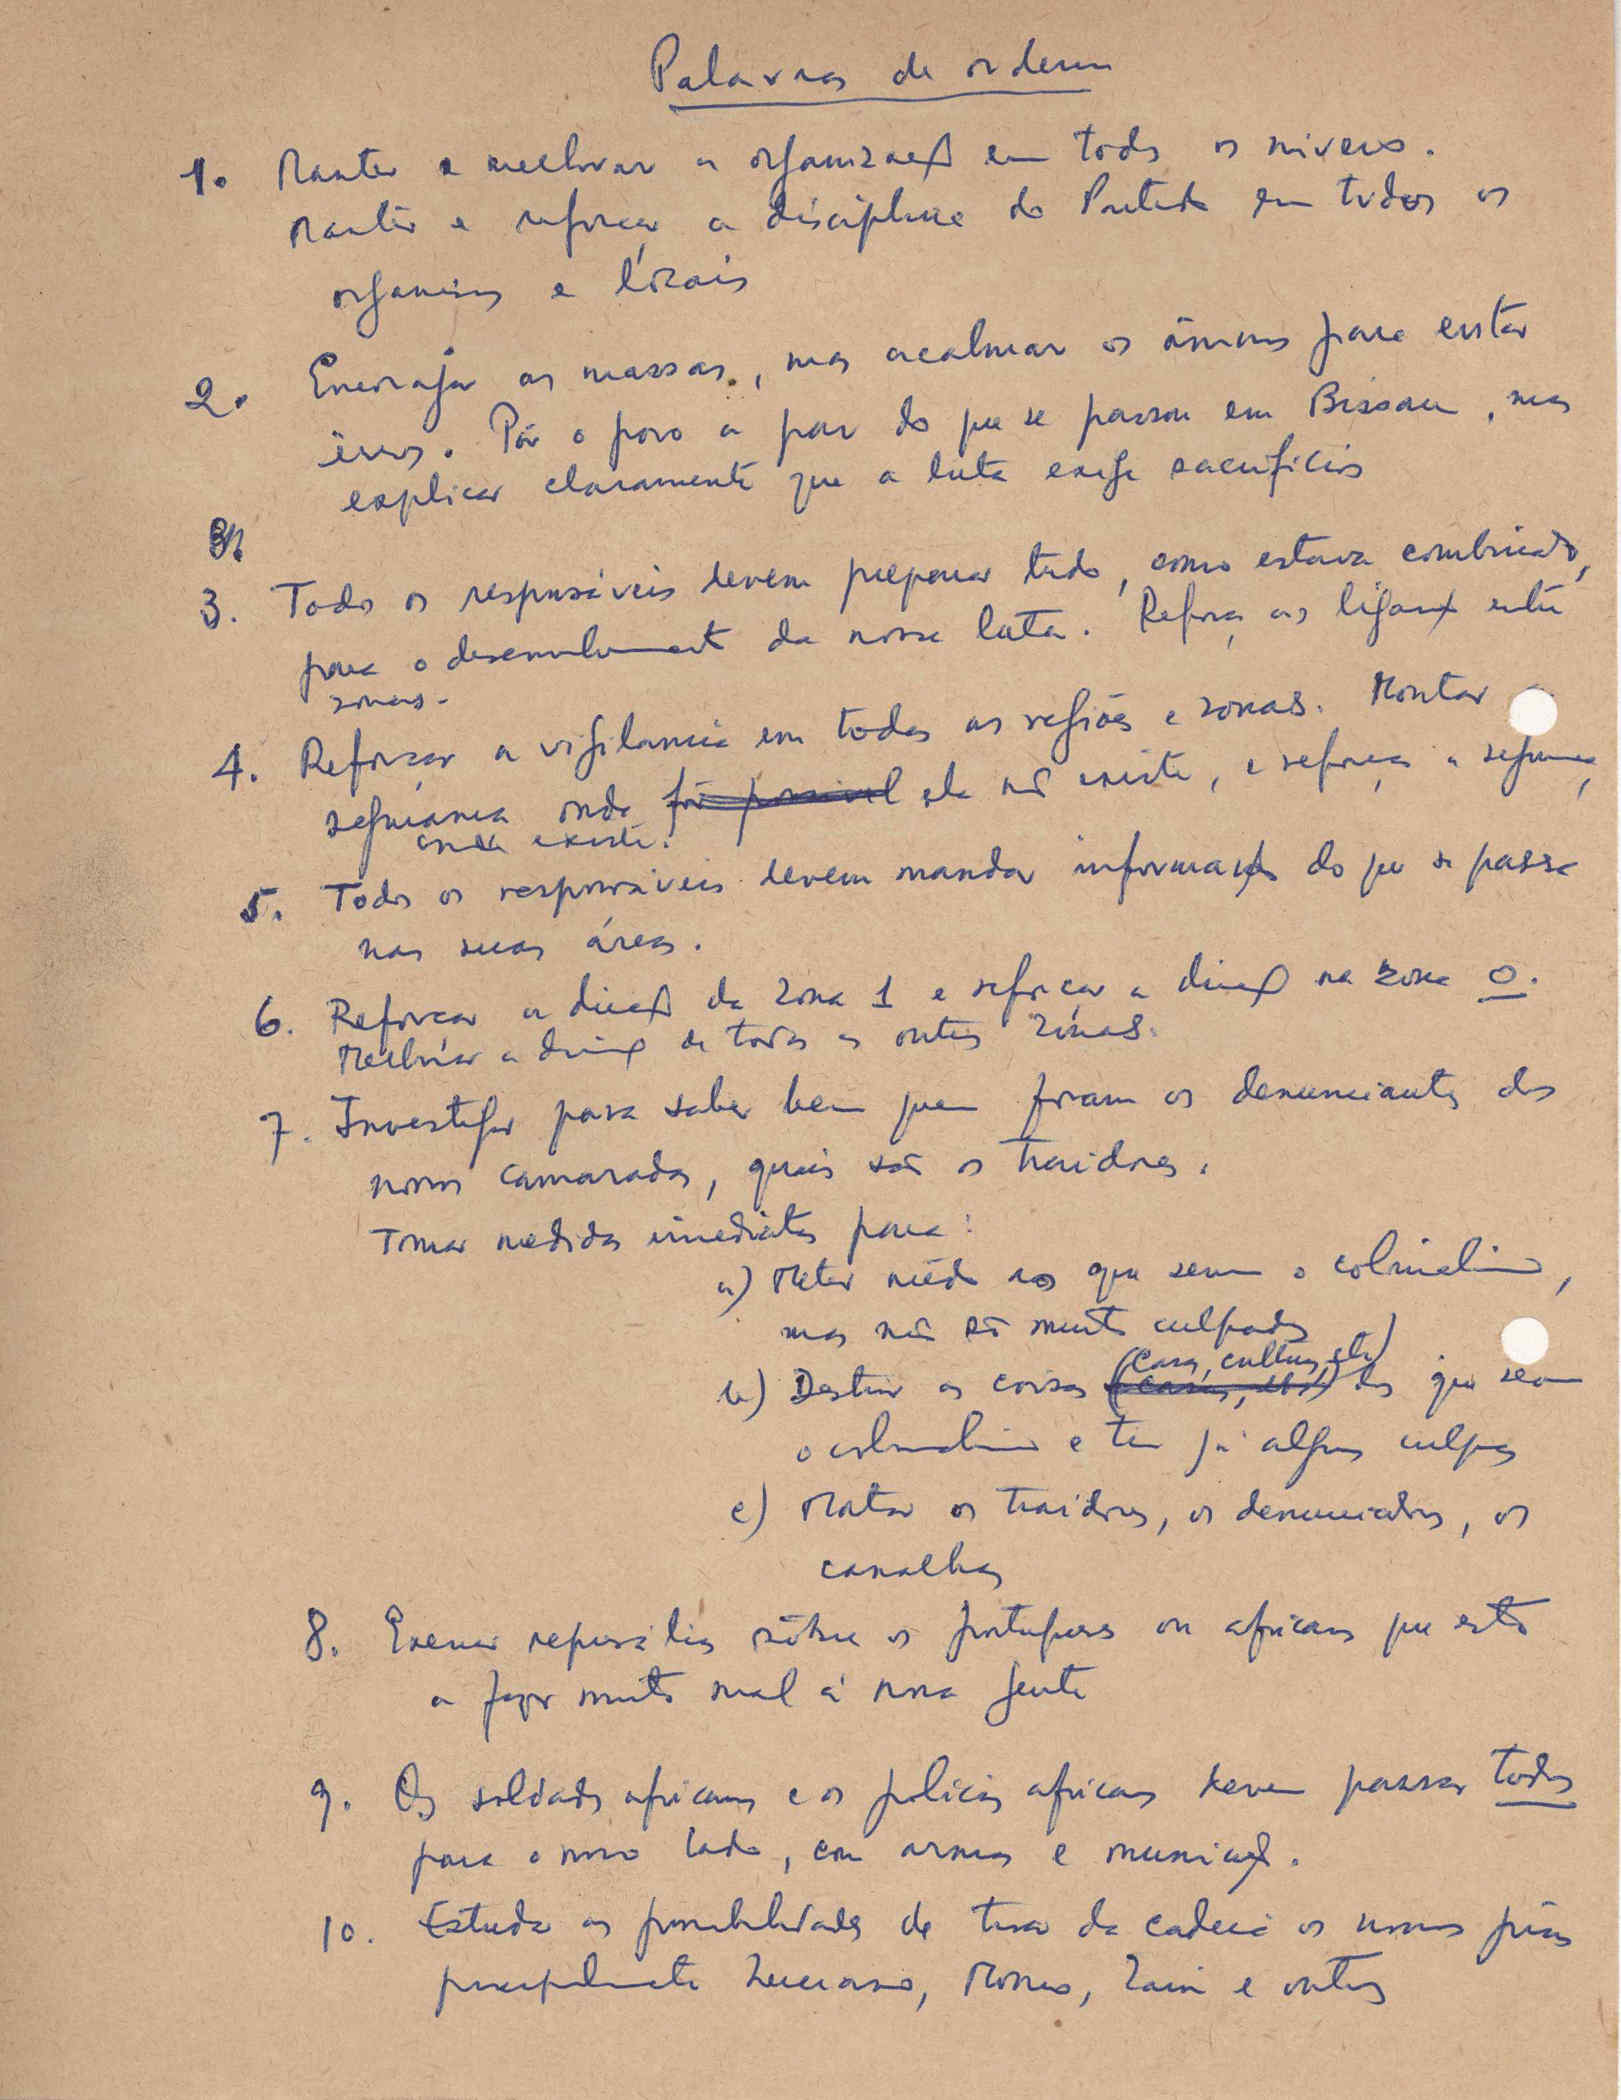 Palavras de ordem
1. Manter e melhorar a organização em todos os níveis.
Manter e reforçar a disciplina do Partido em todos os
organismos e locais
2. Encorajar as massas, mas acalmar os ânimos para evitar
êrros. Pôr o povo a par do que se passou em Bissau, mas
explicar claramente que a luta exige sacrifícios
3.
3. Todos os responsáveis devem preparar tudo, como estava combinado,
para o desenvolvimento da nossa luta. Reforçar as ligações entre
zonas.
4. Reforçar a vigilância em todas as regiões e zonas. Montar a
segurança onde fôr possível ela não existe, e reforçar a segurança
onde existe.
5. Todos os responsáveis devem mandar informações do que se passa
nas suas áreas.
6. Reforçar a direcção da Zona 1 e reforçar a direcção na zona 0.
Melhorar a direcção de todas as outras zonas.
7. Investigar para saber bem quem foram os denunciantes dos
nossos camaradas, quais são os traidores.
Tomar medidas imediatas para:
a) Meter mêdo aos que servem o colonialismo,
mas não são muito culpados
(casas, culturas, etc)
b) Destruir as coisas (casas, etc) dos que servem
o colonialismo e têm já algumas culpas
c) Matar os traidores, os denunciadores, os
canalhas
8. Exercer represálias sôbre os portugueses ou africanos que estão
a fazer muito mal à nossa gente
9. Os soldados africanos e os polícias africanos devem passar todos
para o nosso lado, com armas e munições.
10. Estudar as possibilidades de tirar da cadeia os nossos presos
principalmente e outros